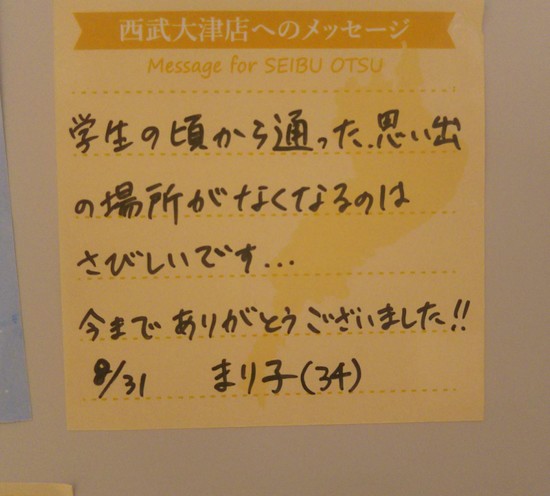 西武大津店へのメッセージ
Message for SEIBU OTSU
学生の頃から通った思い出
の場所がなくなるのは
さびしいです...
今までありがとうございました!!
8/31 まり子(34)